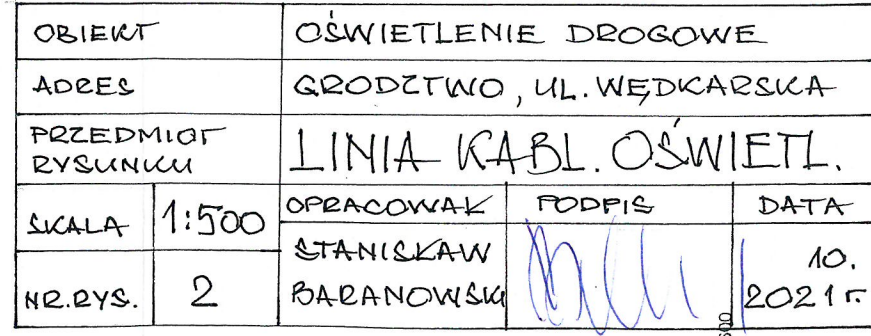 OBIEKT OŚWIETLENIE DROGOWE
ADRES GRODZTWO, UL. WĘDKARSKA
PRZEDMIOT
RYSUNKU
LINIA KABL. OŚWIETL.
SKALA 1:500
OPRACOWAŁ PODPIS DATA
STANISŁAW
BARANOWSKI
10.
2021 r.
NR.RYS. 2